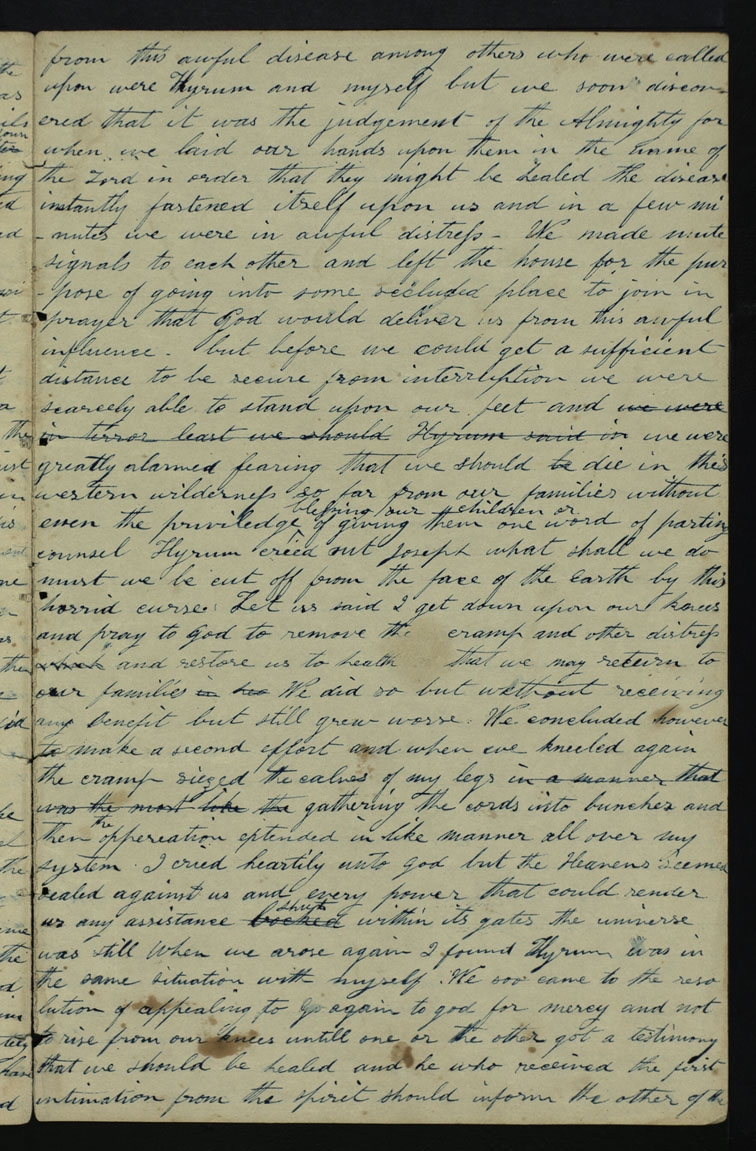 from this awful disease among others who were called
upon were Hyrum and myself but we soon discov=
ered that it was the judgement of the Almighty for
when we laid our hands upon them in the name of
the Lord in order that they might be healed the disease
instantly fastened itself upon us and in a few mi
-nutes we were in awful distress - We made mute
signals to each other and left the house for the pur
-pose of going into some secluded place to join in
prayer that God would deliver us from this awful
influence - but before we could get a sufficient
distance to be secure from interruption we were
scarcely able to stand upon our feet and we were
in terror least we should Hyrum said in we were
greatly alarmed fearing that we should be die in this
western wilderness so far from our families without
blessing our children or
even the priviledge of giving them one word of parting
counsel Hyrum cried out Joseph what shall we do
must we be cut off from the face of the earth by this
horrid curse. Let us said I get down upon our knees
and pray to God to remove the cramp and other distress
which and restore us to health that we may return to
our families We did so but without receiving
any benefit but still grew worse. We concluded however
to make a second effort and when we kneeled again
the cramp siezed the calves of my legs in a manner that
was the most like the gathering the cords into bunches and
then the opperation extended in like manner all over my
system. I cried heartily unto god but the Heavens seemed
sealed against us and every power that could render
shut
us any assistance locked within its gates the universe
was still When we arose again I found Hyrum was in
the same situation with myself. We soo came to the reso
lution of appealing to go again to god for mercy and not
to rise from our knees untill one or the other got a testimony
that we should be healed and he who received the first
intimation from the spirit should inform the other of the